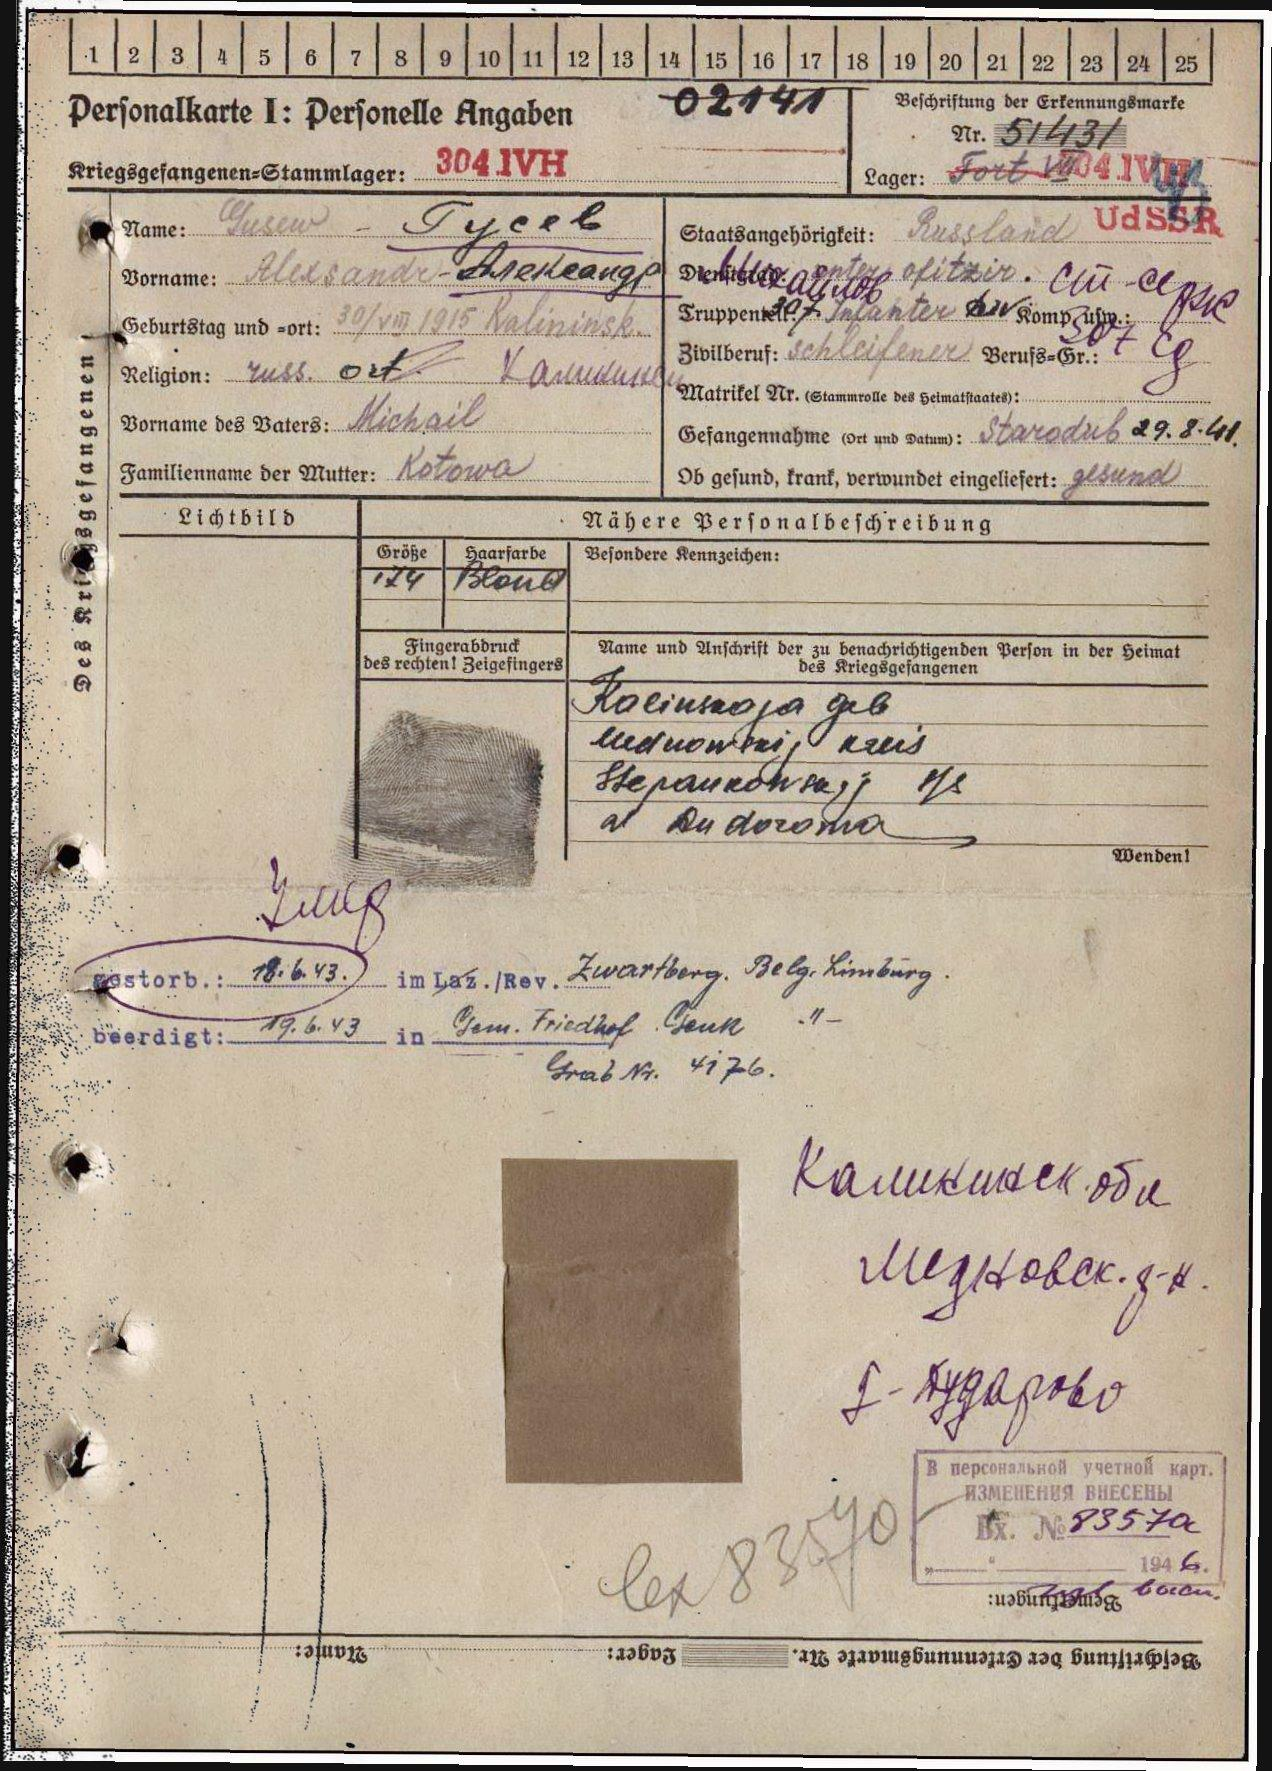 1 2 3 4 5 6 7 8 9 10 11 12 13 14 15 16 17 18 19 20 21 22 23 24 25
Personalkarte I: Personelle Angaben
02141
Beschriftung der Erkennungsmarke
Nr. 51431
Kriegsgefangenen-Stammlager: 304 IVH
Lager: Fort VIII 304 IVH
Des Kriegsgefangenen
Name: Gusew - Гусев
Staatsangehörigkeit: Russland UdSSR
Vorname: Alexsandr - Александр Михайлов
Dienstgrad: unter ofitzir. ст-серж
Geburtstag und -ort: 30/VIII 1915 Kalininsk.
Truppenteil: 307 Infanter Komp. usw.: 307 сд
Religion: russ. ort Калининск
Zivilberuf: schleifener Berufs-Gr.:
Matrikel Nr. (Stammrolle des Heimatstaates):
Vorname des Vaters: Michail
Gefangennahme (Ort und Datum): Starodub 29.8.41.
Familienname der Mutter: Kotowa
Ob gesund, krank, verwundet eingeliefert: gesund
Lichtbild
Nähere Personalbeschreibung
Größe Haarfarbe Besondere Kennzeichen:
174 Blond
Fingerabdruck
des rechten! Zeigefingers
Name und Anschrift der zu benachrichtigenden Person in der Heimat
des Kriegsgefangenen
Kalinskaja geb
Mednowskij kreis
Stepankowskij s/s
Wenden!
Умер
gestorb.: 18.6.43. im Laz./Rev. Zwartberg. Belg. Limburg.
beerdigt: 19.6.43 in Gem. Friedhof Genk -"-
Grab Nr. 4176.
Калининск. обл
Медновск. р-н.
Г-Дударово
В персональной учетной карт.
ИЗМЕНЕНИЯ ВНЕСЕНЫ
Вх. № 83570с
„ “ 1946.
Bemerkungen:
Beschriftung der Erkennungsmarke Nr. Lager: Name: